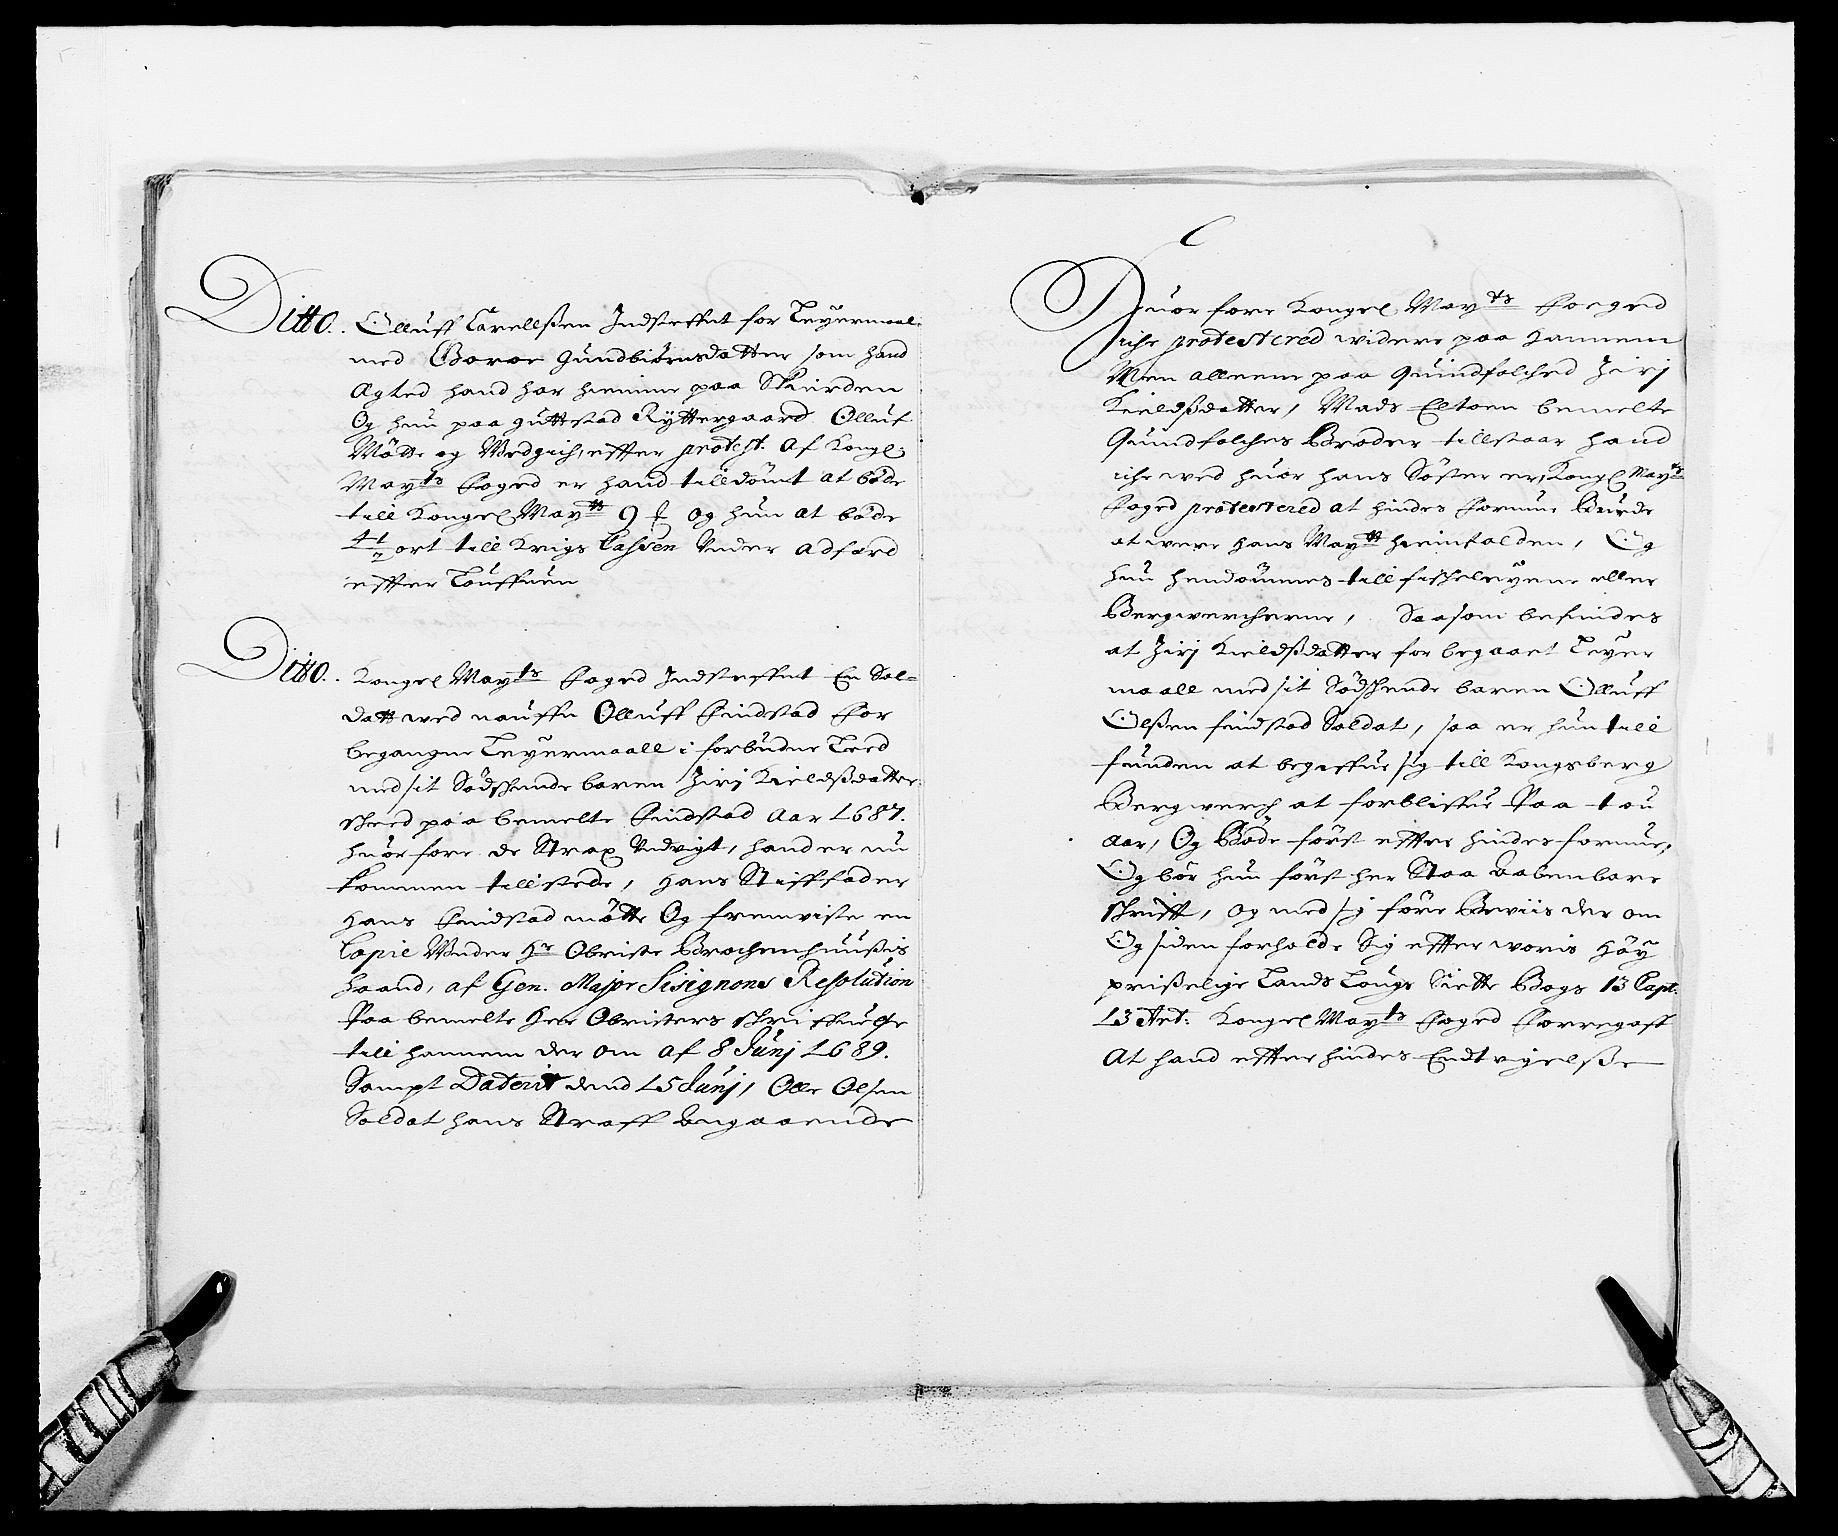 Ditto. Olluff Carellßen Indsteffnt for Leyermaal
med Goroe Gundbiörnsdatter som hand
Agted hand har hiemme paa Skierden
Og hun paa guttestad Ryttergaard Olluf
Mötte og Wedgich, effter protest. Af Kongl:
Mayts Foged er hand tilldömt atböde
till Kongel Maytts 9 og hun at böde
4½ ort till Krigs Cassen Under adfærd
effter Louffuen
Ditto. Kongel Mayts Foged Indsteffnt En Sol-
datt wed naffn Olluff Findstad For
begangne Leyermaall i forbudne Leed
med sit Södschende baren Zirj Kieldßdatter
scheed paa bemelte Findstad Aar 1687.
huorfore de Strax Undvigt, hand er nu
kommen tillstede, Hans Stiffader
Hans Findstad mötte Og fremviste en
Copie Under Hr Obriste Brochenhuußis
haand, af Gen. Major Sisignons Resolution
Paa bemelte Herr Obristers schriffuelse
till hannem der om af 8 Junj 1689.
Sampt Daterit dend 15 Junj, Olle Olsen
Soldat hans Straff Angaaende
Huorfore Kongel Mayts Foeged
iche protestered widere paa Hannem
Men alleene paa quindfolched Zirj
Kieldßdatter, Mads Eltoen bemelte
Quindfolches Broder tillstaar hand
iche wed huor hans Söster er, Kongl Mayts
Foged protestered at hindes Formue Burde
at were Hans Maytts hiemfalden, Og
hun hendömmes till fischeleyene eller
Bergwercherne, Saasom befindes
at Zirj Kieldßdatter for begaaet Leyer
maall med sit Södschende baren Olluff
Olßen findstad Soldat, saa er hun till
funden at begiffue sig till Kongsberg
Bergwerch at forbliffue Paa tou
Aar, Og Böde först effter hindes formue,
Og bör hun först her Staa Aabenbare
schrifft, og med sig före Bewiis der om
Og siden forholde Sig effter woris Höy
prißelige Lands Lougs Siette Bogs 13 Capt.
13 Art: Kongel Mayts Foged Forregaff
At hand effter hindes Endvigelße